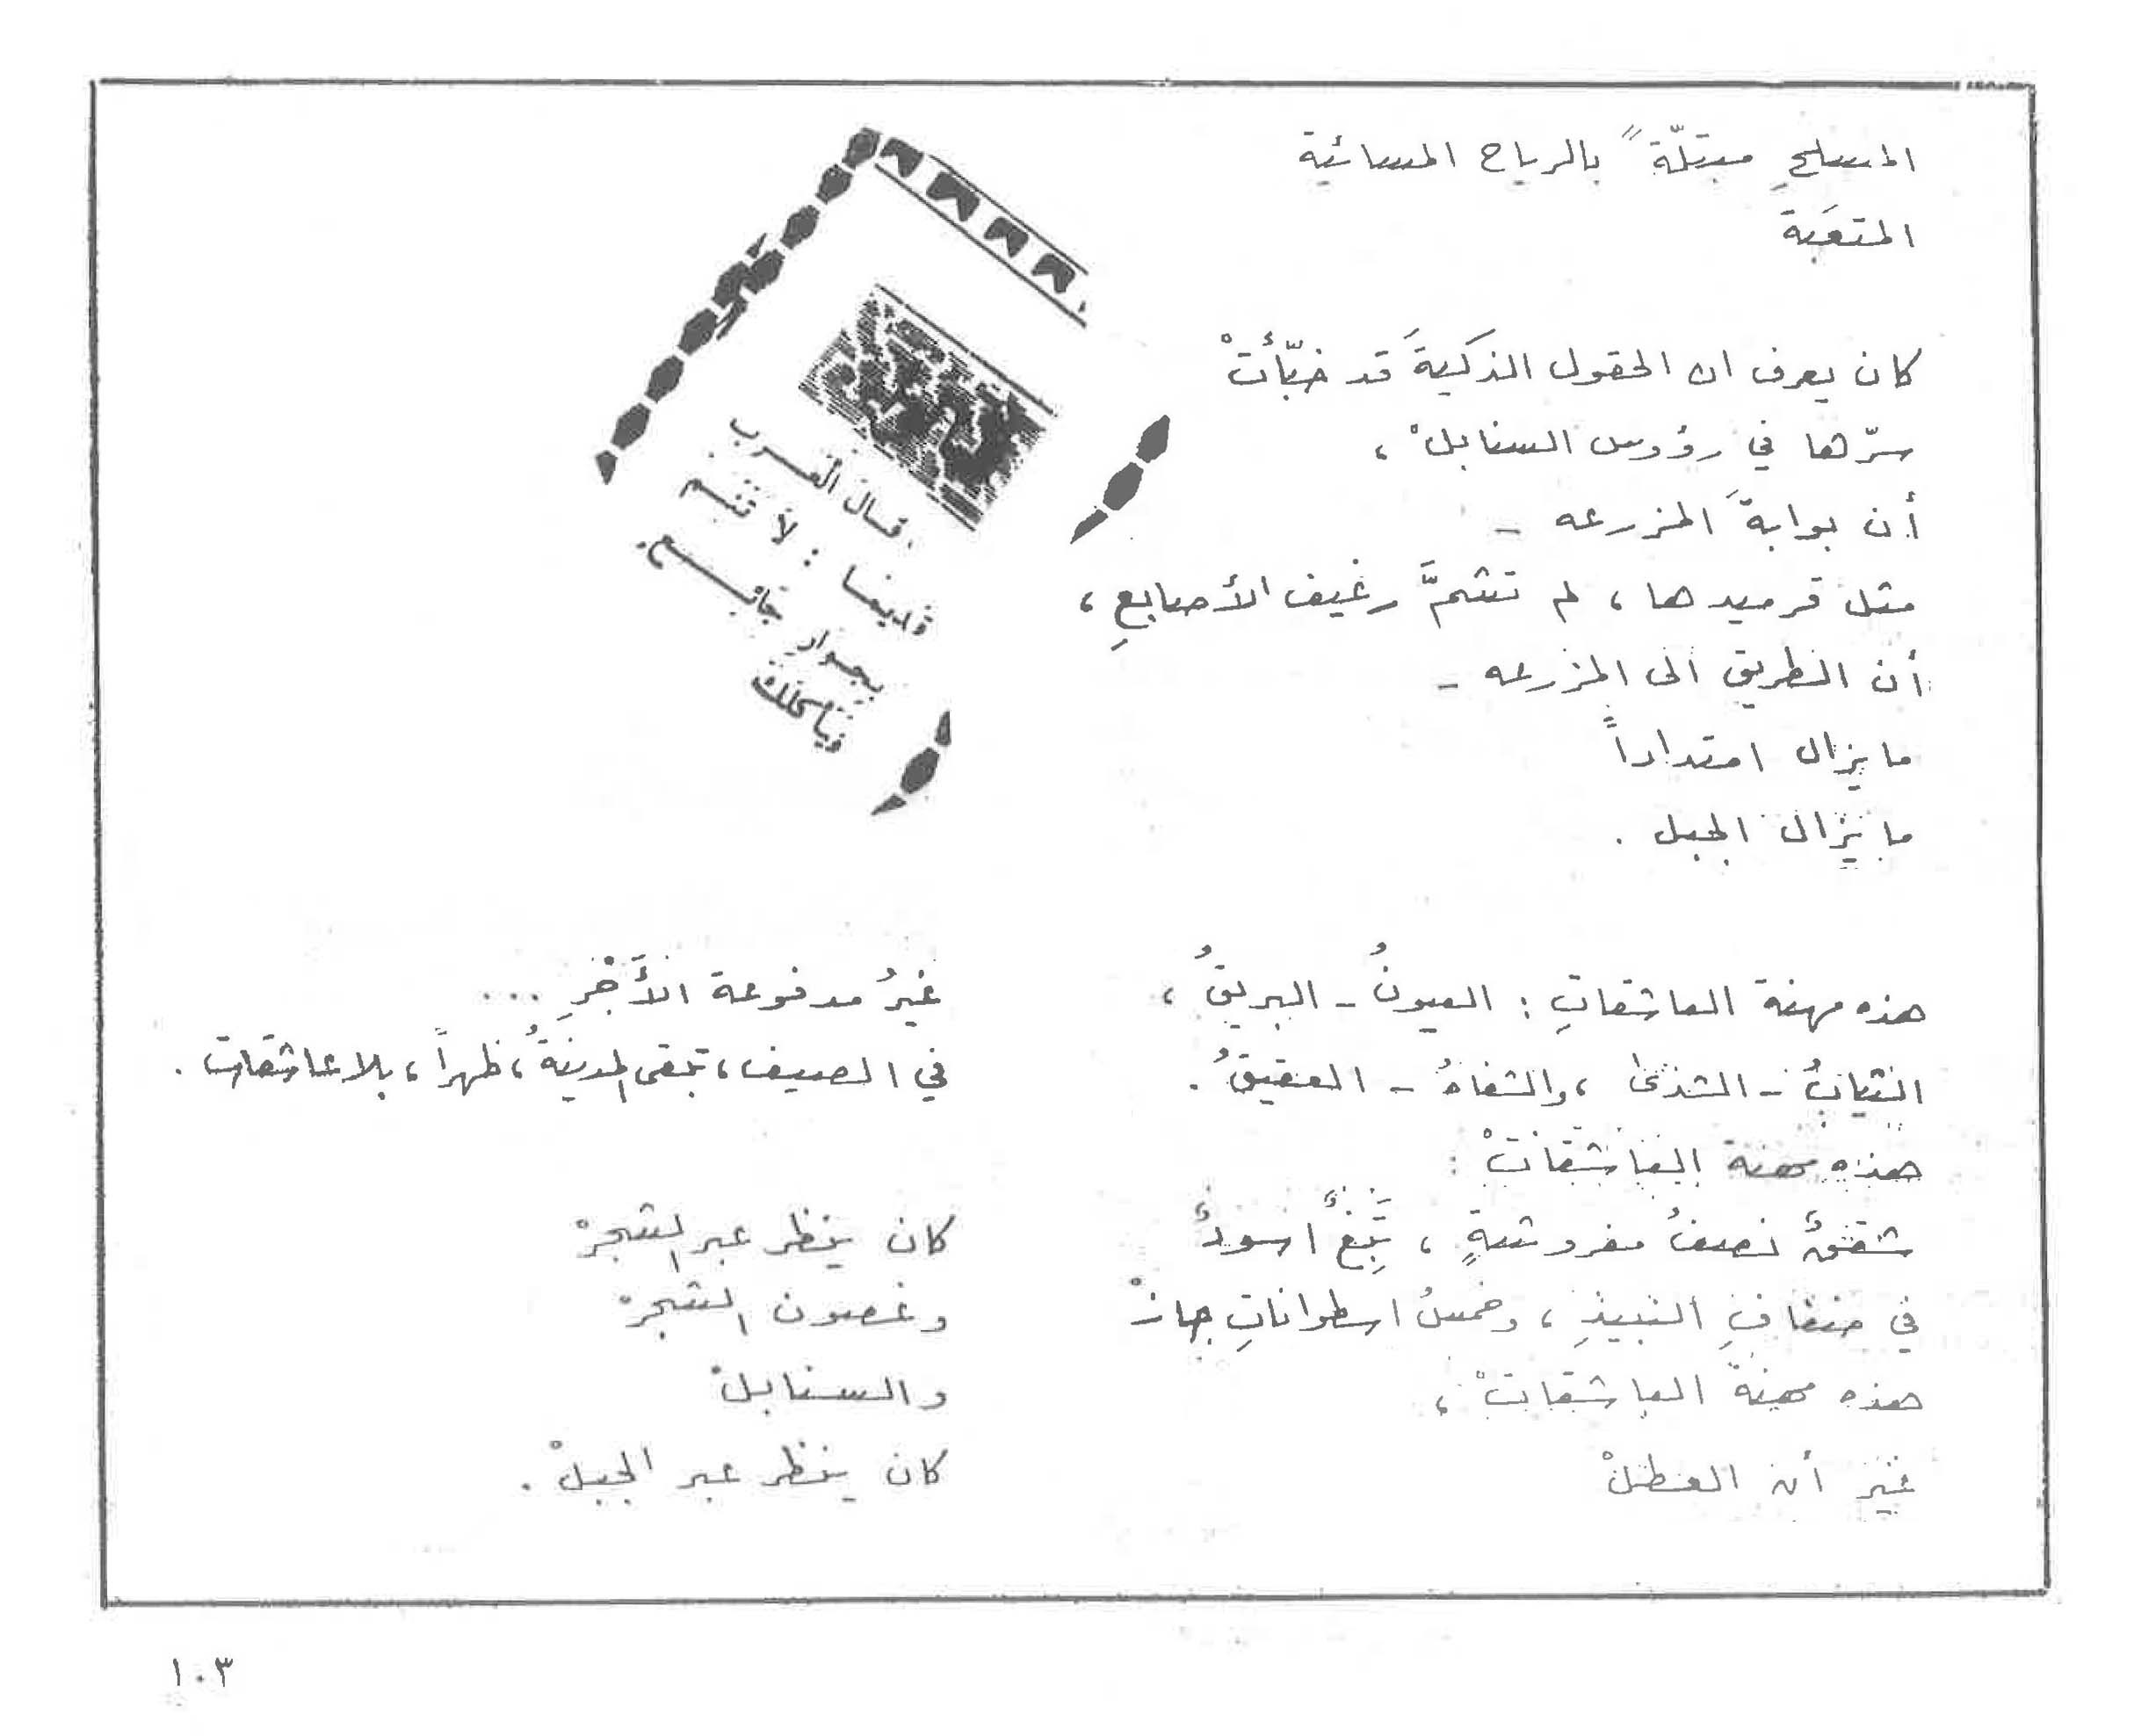 المسلحِ مبتلّةً بالرياح المسائية
المتعَبة
كان يعرف ان الحقول الذكيةَ قد خبّأتْ
سرّها في رؤوس السنابلْ ،
أن بوابةَ المزرعه -
مثل قرميدها ، لم تشمَّ رغيف الأصابعِ ،
أن الطريق الى المزرعه -
ما يزال امتداداً
ما يزال الجبل .
قال العرب
قديما : لا تقم
بجوار جائع
فيأكلك
هذه مهنة العاشقاتِ : العيونُ - البريقُ ،
الثيابُ - الشذى ، والشفاهُ - العقيقُ .
هذه مهنة العاشقاتْ :
شققٌ نصفُ مفروشةٍ ، تَبِغٌ اسودٌ
في ضفافِ النبيذِ ، وخمسُ اسطواناتِ جازْ
هذه مهنة العاشقاتْ ،
غير أن العطلْ
غيرُ مدفوعة الأَجْرِ ...
في الصيف ، تبقى المدينةُ ، ظهراً ، بلا عاشقات .
كان ينظر عبر الشجرْ
وغصون الشجرْ
والسنابلْ
كان ينظر عبر الجبلْ .
١٠٣